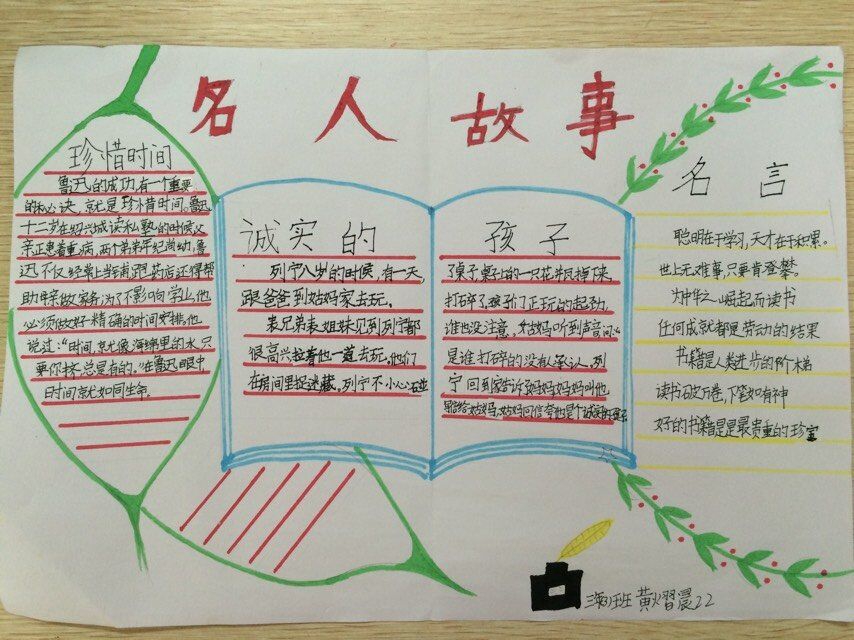 名人故事
珍惜时间
鲁迅的成功,有一个重要
的秘诀,就是珍惜时间。鲁迅
十二岁在绍兴城读私塾的时候,父
亲正患着重病,两个弟弟年纪尚幼,鲁
迅不仅经常上当铺,跑药店,还得帮
助母亲做家务,为了不影响学业,他
必须做好精确的时间安排。他
说过:“时间,就像海绵里的水,只
要你挤,总是有的。”在鲁迅眼中,
时间就如同生命。
诚实的
列宁八岁的时候,有一天,
跟爸爸到姑妈家去玩。
表兄弟表姐妹见到列宁都
很高兴拉着他一道去玩。他们
在房间里捉迷藏。列宁不小心
孩子
了桌子,桌子上的一只花瓶掉下来,
打碎了,孩子们正玩的起劲,
谁也没注意。姑妈听到声音问:“
是谁打碎的没有人承认。列
宁回到家告诉妈妈妈妈叫他
写信给姑妈,姑妈回信夸他是个诚实的孩子
名言
聪明在于学习,天才在于积累。
世上无难事,只要肯登攀。
为中华之崛起而读书
任何成就都是劳动的结果
书籍是人类进步的阶梯
读书破万卷,下笔如有神
好的书籍是是最贵重的珍宝
班 黄熠晨22